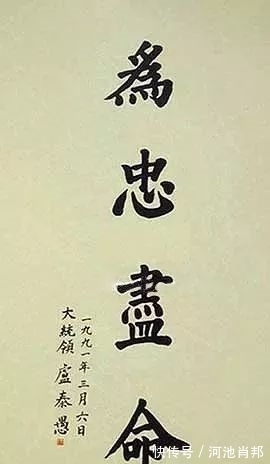 為忠盡命
一九九一年三月六日
大統領 盧泰愚
快传号/河池肖邦